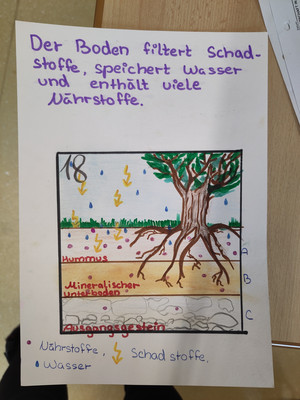 Der Boden filtert Schad-
stoffe, speichert Wasser
und enthält viele
Nährstoffe.
18
A
Hummus
B
Mineralischer
Unterboden
C
Ausgangsgestein
Nährstoffe, Schadstoffe,
Wasser